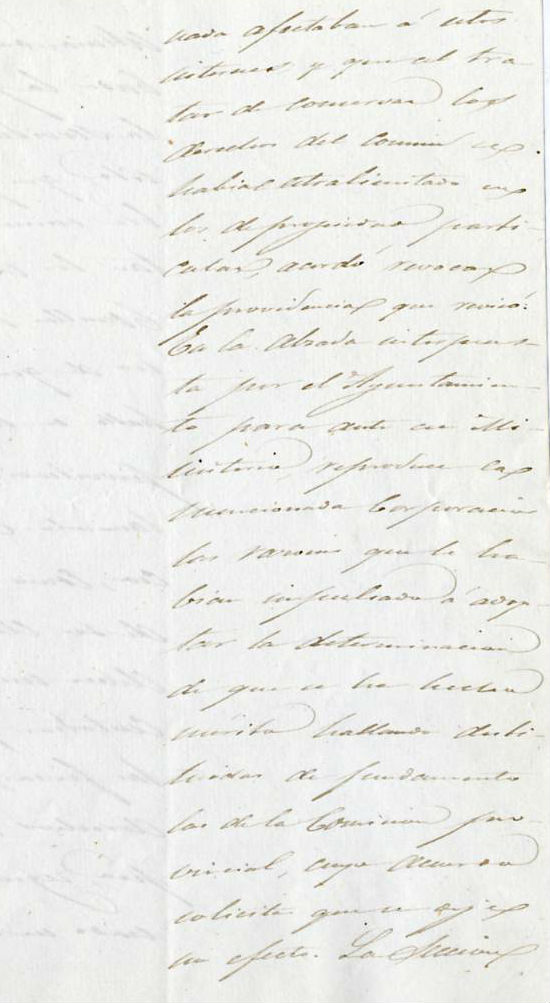 nada afectaban á estos
intereses y que al tra-
tar de conservar los
derechos del comun se
habia estralimitado en
los de propiedad parti-
cular, acordó revocar
la providencia que revisó.
En la Alzada interpues-
ta por el Ayuntamien-
to para ante ese Mi-
nisterio, reproduce la
mencionada Corporacion
las razones que le ha-
bian impulsado á adop-
tar la determinacion
de que se ha hecho
mérito hallando desti-
tuidas de fundamento
las de la Comision pro-
vincial, cuyo acuerdo
solicita que se deje
sin efecto. La Seccion